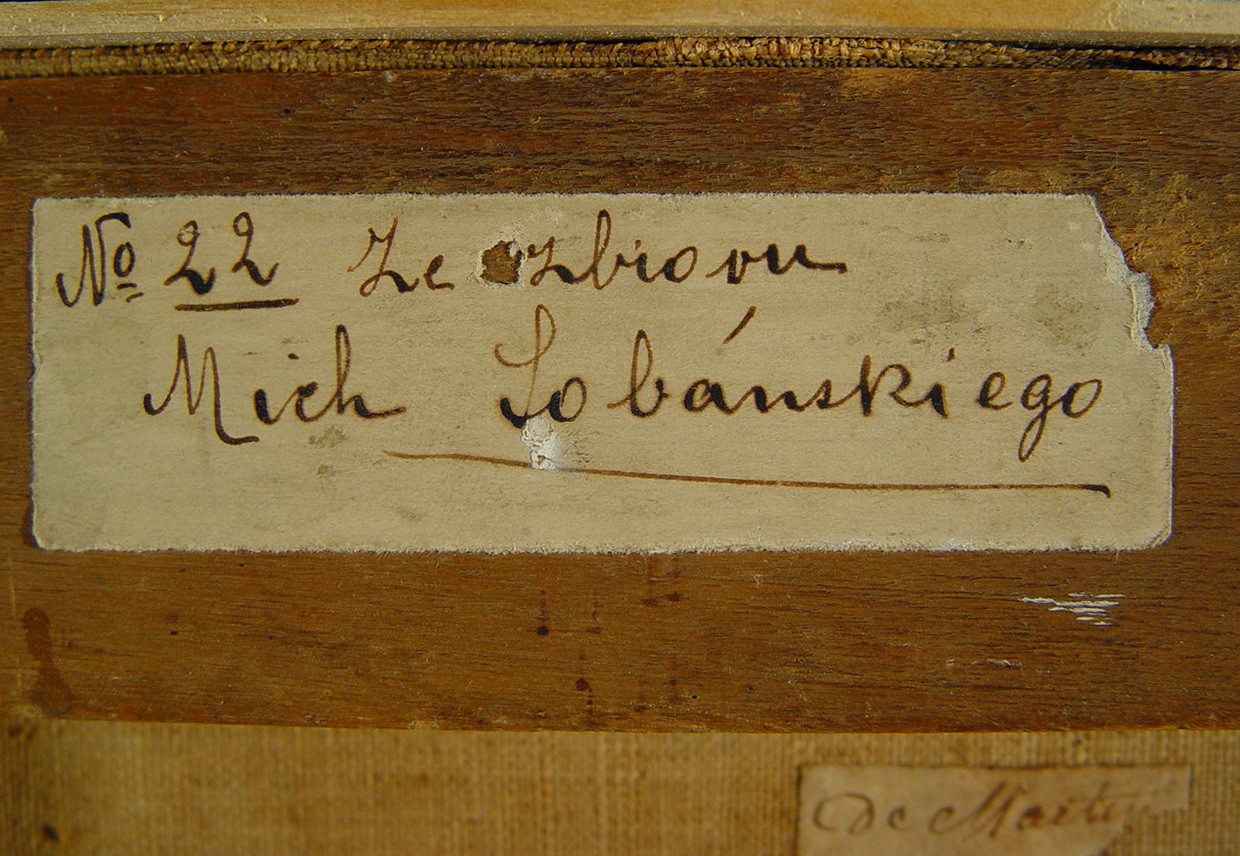 Nº 22 Ze zbioru
Mich Sobańskiego
de